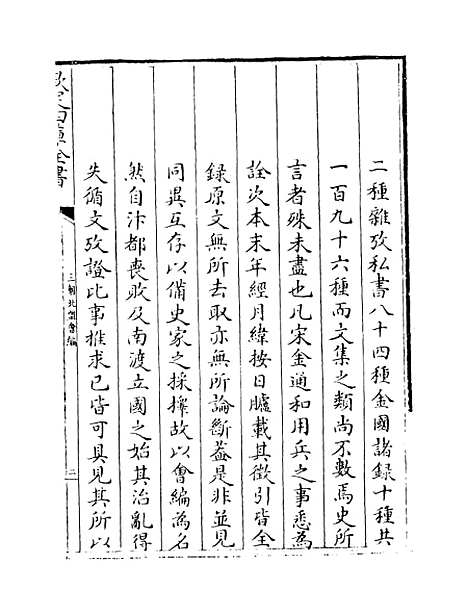 二種雜攷私書八十四種金國諸録十種共
一百九十六種而文集之類尚不數焉史所
言者殊未盡也凡宋金通和用兵之事悉為
詮次本末年經月緯按日臚載其徵引皆全
録原文無所去取亦無所論斷葢是非並見
同異互存以備史家之採擇故以會編為名
然自汴都喪敗及南渡立國之始其治亂得
失循文攷證比事推求已皆可具見其所以
欽定四庫全書
三朝北盟會編
二